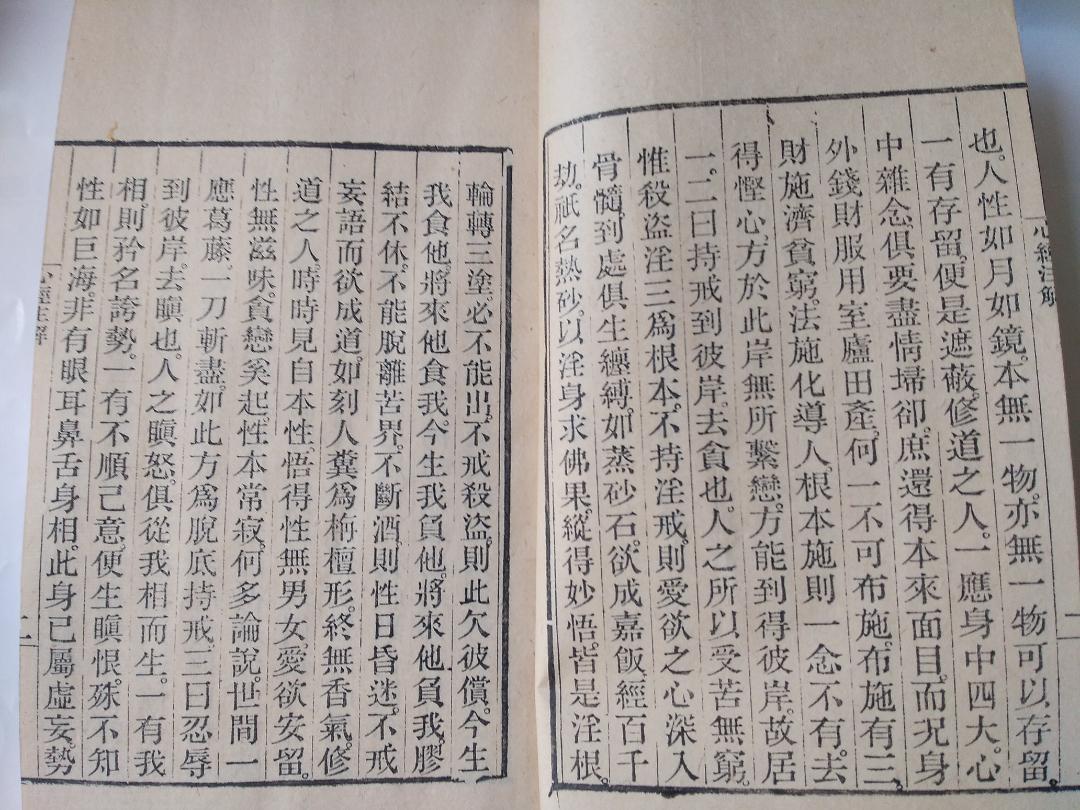 心經注解
也。人性如月如鏡。本無一物。亦無一物可以存留。
一有存留。便是遮蔽。修道之人。一應身中四大。心
中雜念。俱要盡情埽卻。庶還得本來面目。而況身
外錢財服用室廬田產。何一不可布施。布施有三。
財施濟貧窮。法施化導人。根本施則一念不有。去
得慳心。方於此岸無所繫戀。方能到得彼岸。故居
一。二曰持戒到彼岸。去貪也。人之所以受苦無窮。
惟殺盜淫三爲根本。不持淫戒。則愛欲之心深入
骨髓。到處俱生纏縛。如蒸砂石。欲成嘉飯。經百千
劫。祇名熱砂。以淫身求佛果。縱得妙悟。皆是淫根。
輪轉三塗。必不能出。不戒殺盜。則此欠彼償。今生
我食他。將來他食我。今生我負他。將來他負我。膠
結不休。不能脫離苦界。不斷酒則性日昏迷。不戒
妄語而欲成道。如刻人糞爲栴檀形。終無香氣。修
道之人。時時見自本性。悟得性無男女。愛欲安留。
性無滋味。貪戀奚起。性本常寂。何多論說。世間一
應葛藤。一刀斬盡。如此方爲脫底持戒。三曰忍辱
到彼岸。去瞋也。人之瞋怒。俱從我相而生。一有我
相。則矜名誇勢。一有不順己意。便生瞋恨。殊不知
性如巨海。非有眼耳鼻舌身相。此身已屬虛妄。勢
心經注解
二